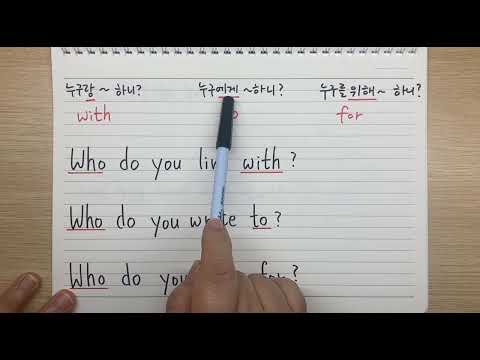 누구랑 ~ 하니? 누구에게 ~하니? 누구를 위해~ 하니?
with for
Who do you with?
Who do you write to?
Who do you for?